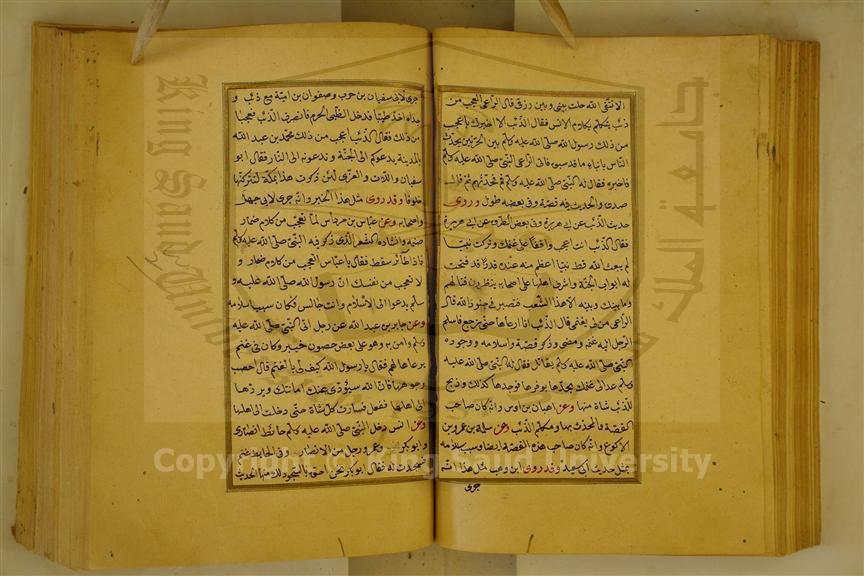 الا تتقى الله حلت بينى وبين رزقى قال الراعى العجب من
ذئب يتكلم بكلام الانس فقال الذئب الا اخبرك باعجب
من ذلك رسول الله صلى الله عليه وسلم بين الحرتين يحدث
الناس بانباء ما قد سبق فاتى الراعى النبى صلى الله عليه وسلم
فاخبره فقال له النبى صلى الله عليه وسلم قم فحدثهم ثم قال
صدق والحديث فيه قصة وفى بعضه طول وروى
حديث الذئب عن ابى هريرة وفى بعض الطرق عن ابى هريرة
فقال الذئب انت اعجب واقفا على غنمك وتركت نبيا
لم يبعث الله قط نبيا اعظم منه عنده قدرا قد فتحت
له ابواب الجنة واشرف اهلها على اصحابه ينظرون قتالهم
وما بينك وبينه الا هذا الشعب فتصير فى جنود الله قال
الراعى من لى بغنمى قال الذئب انا ارعاها حتى ترجع فاسلم
الرجل اليه غنمه ومضى وذكر قصته واسلامه ووجوده
النبى صلى الله عليه وسلم يقاتل فقال له النبى صلى الله عليه
وسلم عد الى غنمك تجدها بوفرها فوجدها كذلك وذبح
للذئب شاة منها وعن اهبان بن اوس وانه كان صاحب
القصة والمحدث بها ومكلم الذئب وعن سلمة بن عمرو بن
الاكوع وانه كان صاحب هذه القصة ايضا وسبب اسلامه
بمثل حديث ابى سعيد وقد روى ابن وهب مثل هذا انه
جرى
جرى لابى سفيان بن حرب وصفوان بن امية مع ذئب و
جداه اخذ ظبيا فدخل الظبى الحرم فانصرف الذئب فعجبا
من ذلك فقال الذئب اعجب من ذلك محمد بن عبد الله
بالمدينة يدعوكم الى الجنة وتدعونه الى النار فقال ابو
سفيان واللات والعزى لئن ذكرت هذا بمكة لتتركنها
خلوفا وقد روى مثل هذا الخبر وانه جرى لابى جهل
واصحابه وعن عباس بن مرداس لما تعجب من كلام ضمار
صنمه وانشاده الشعر الذى ذكر فيه النبى صلى الله عليه وسلم
فاذا طائر سقط فقال يا عباس اتعجب من كلام ضمار و
لا تعجب من نفسك ان رسول الله صلى الله عليه و
سلم يدعوا الى الاسلام وانت جالس فكان سبب اسلامه
وعن جابر بن عبد الله عن رجل اتى النبى صلى الله عليه
وسلم وامن به وهو على بعض حصون خيبر وكان فى غنم
يرعاها لهم فقال يا رسول الله كيف لى بالغنم قال احصب
وجوهها فان الله سيؤدى عنك امانتك ويردها
الى اهلها ففعل فسارت كل شاة حتى دخلت الى اهلها
وعن انس دخل النبى صلى الله عليه وسلم حائط انصارى
وابو بكر وعمر ورجل من الانصار وفى الحائط غنم
فسجدت له فقال ابو بكر نحن احق بالسجود لك منها الحديث
King Saud University
جامعة الملك
Copyright © King Saud University